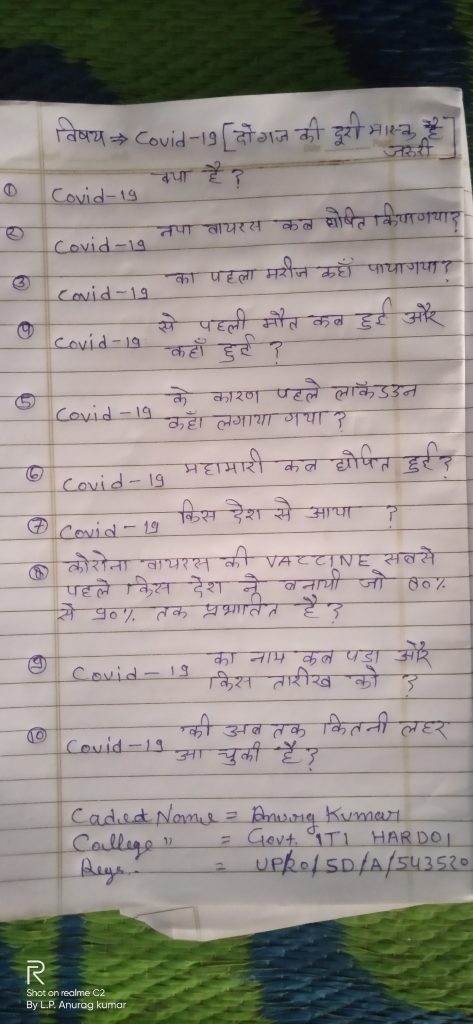 विषय ⇒ Covid-19 [दो गज की दूरी मास्क है
जरुरी]
① Covid-19 क्या है ?
② Covid-19 नया वायरस कब घोषित किया गया ?
③ Covid-19 का पहला मरीज कहाँ पाया गया ?
④ Covid-19 से पहली मौत कब हुई और
कहाँ हुई ?
⑤ Covid-19 के कारण पहले लाकॅडउन
कहाँ लगाया गया ?
⑥ Covid-19 महामारी कब घोषित हुई ?
⑦ Covid-19 किस देश से आया ?
⑧ कोरोना वायरस की VACCINE सबसे
पहले किस देश ने बनायी जो 80%
से 90% तक प्रभावित है ?
⑨ Covid-19 का नाम कब पड़ा और
किस तारीख को ?
⑩ Covid-19 की अब तक कितनी लहर
आ चुकी है ?
Caded Name = Anurag Kumar
College " = Govt. ITI HARDOI
Regs.. = UP/20/SD/A/543520
R
Shot on realme C2
By L.P. Anurag kumar